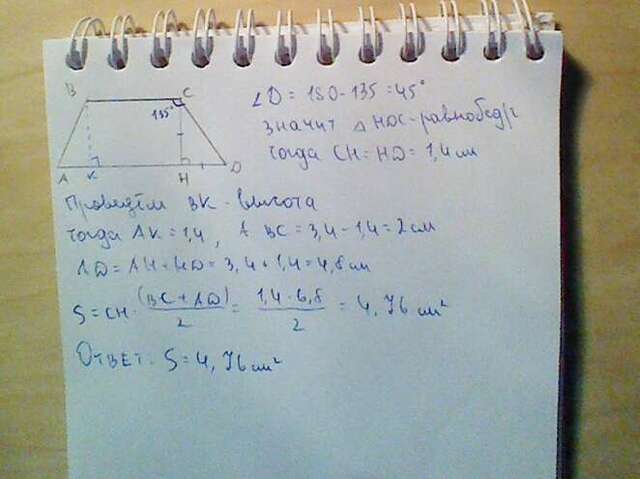 B C
135°
A K H D
∠D = 180 - 135 = 45°
значит △ HDC - равнобедр
тогда CH = HD = 1,4 см
Проведём BK - высота
тогда AK = 1,4 , а BC = 3,4 - 1,4 = 2 см
AD = AH + HD = 3,4 + 1,4 = 4,8 см
S = CH · (BC + AD) / 2 = 1,4 · 6,8 / 2 = 4,76 см²
Ответ: S = 4,76 см²